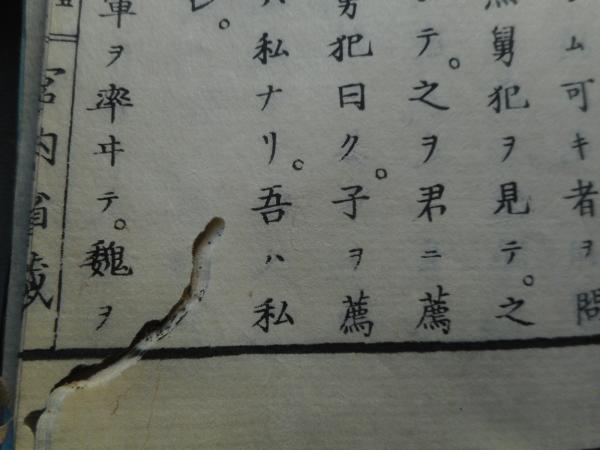 ム可キ者ヲ問
舅犯ヲ見テ。之
テ。之ヲ君ニ薦
犯曰ク。子ヲ薦
ハ私ナリ。吾ハ私
軍ヲ率ヰテ。魏ヲ
宮内省蔵